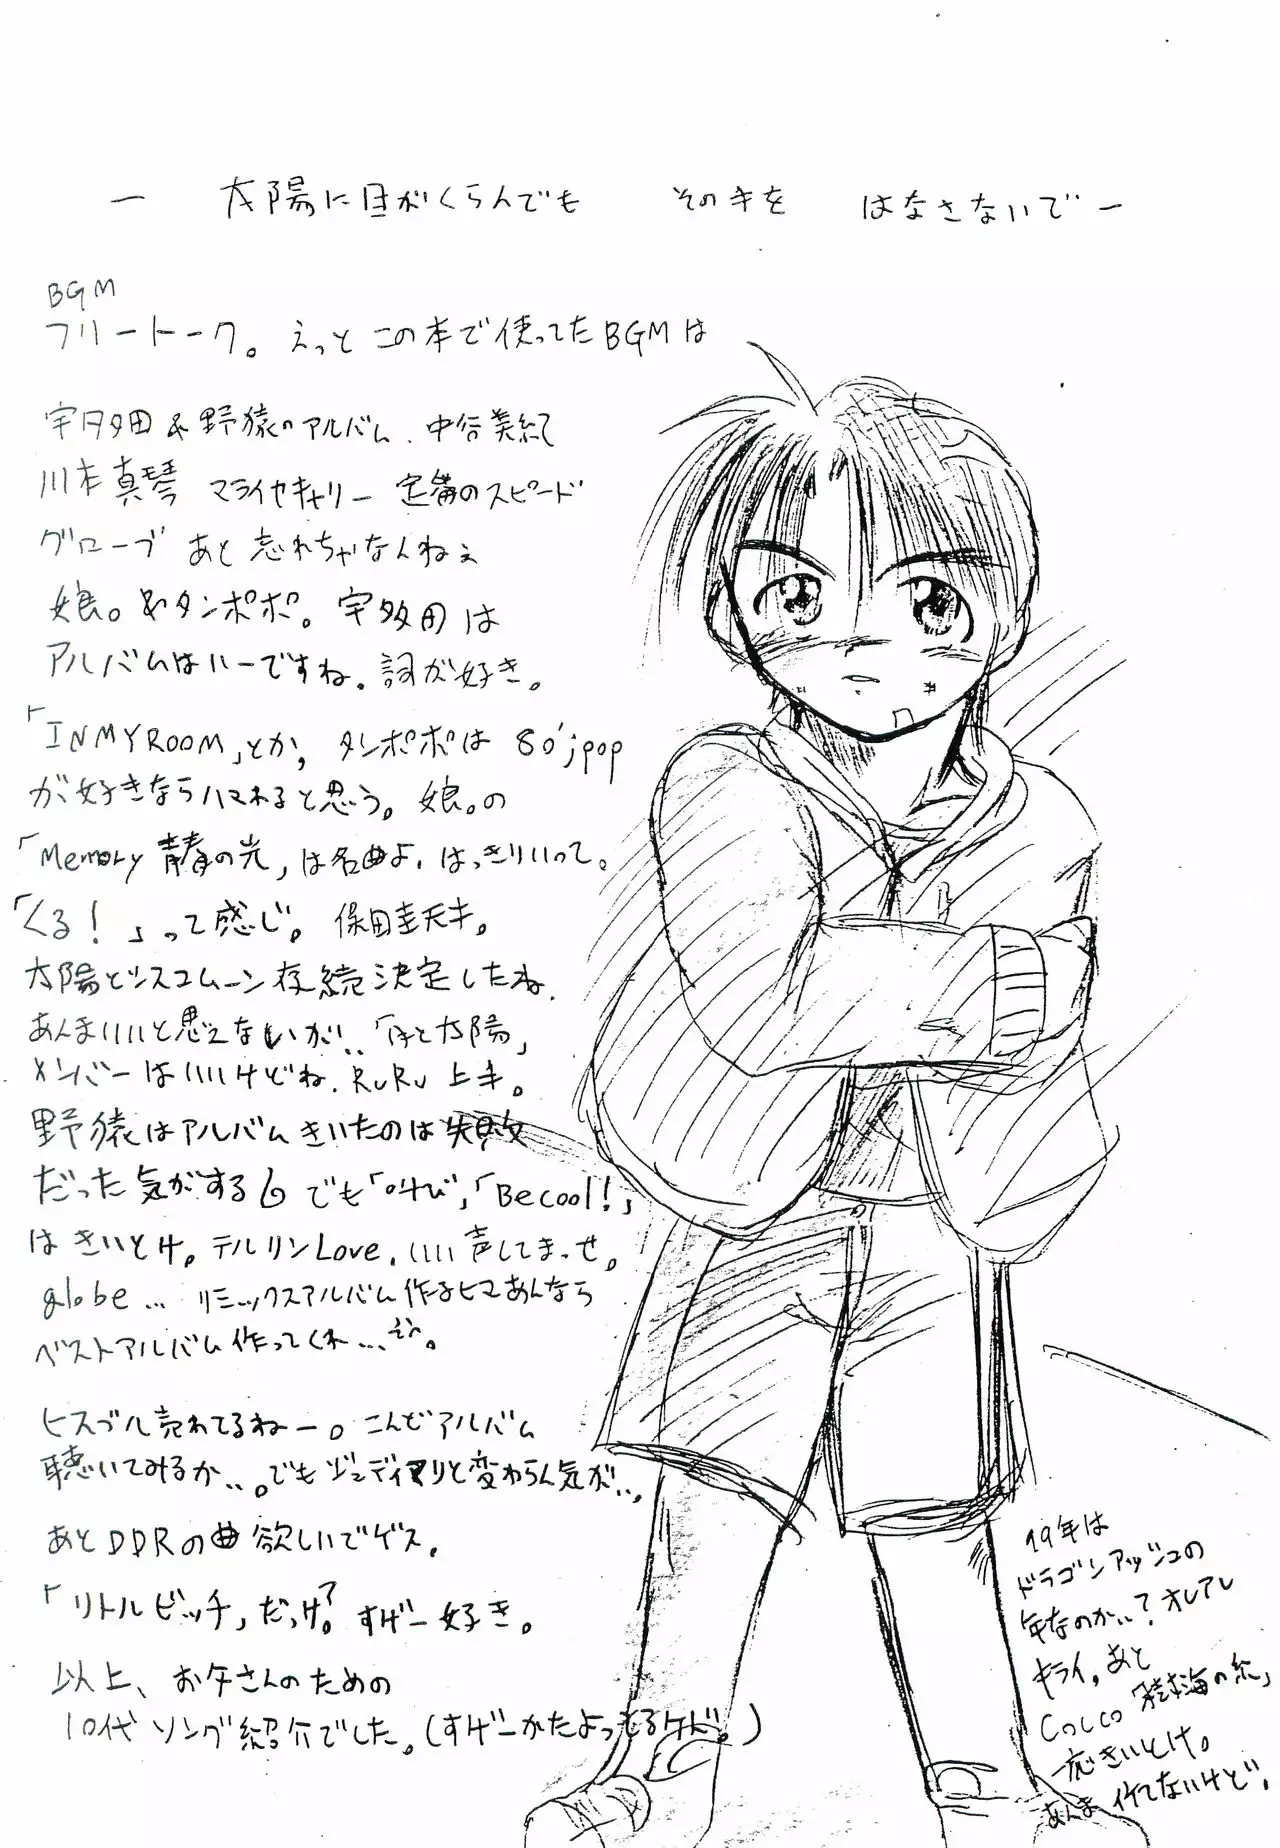 — 太陽に目がくらんでも その手を はなさないで —
BGM
フリートーク。えっと この本で使ってたBGMは
宇多田&野猿のアルバム、中谷美紀
川本真琴 マライヤキャリー 定番のスピード
グローブ あと 忘れちゃなんねぇ
娘。&タンポポ。宇多田は
アルバムはいーですね。詞が好き。
「IN MY ROOM」とか、タンポポは 80'jpop
が好きならハマれると思う。娘。の
「Memory 青春の光」は名曲よ、はっきりいって。
「くる!」って感じ。保田圭天才。
太陽とシスコムーン存続決定したね、
あんまいいと思えないが…「月と太陽」
メンバーはいいけどね、RuRu 上手。
野猿はアルバムきいたのは失敗
だった気がする でも「叫び」「Be cool!」
はきいとけ。テルリンLove、いい声してまっせ。
globe… リミックスアルバム作るヒマあんなら
ベストアルバム作ってくれ…
ヒスブル売れてるねー。こんどアルバム
聴いてみるか…。でもジュディマリと変わらん気が…、
あとDDRの曲欲しいでゲス。
「リトルビッチ」だっけ?すげー好き。
以上、お父さんのための
10代ソング紹介でした。(すげーかたよってるケド。)
99年は
ドラゴンアッシュの
年なのか…?オレアレ
キライ。あと
Cocco 「樹海の糸」
一応きいとけ。
あんま 似てないけど。